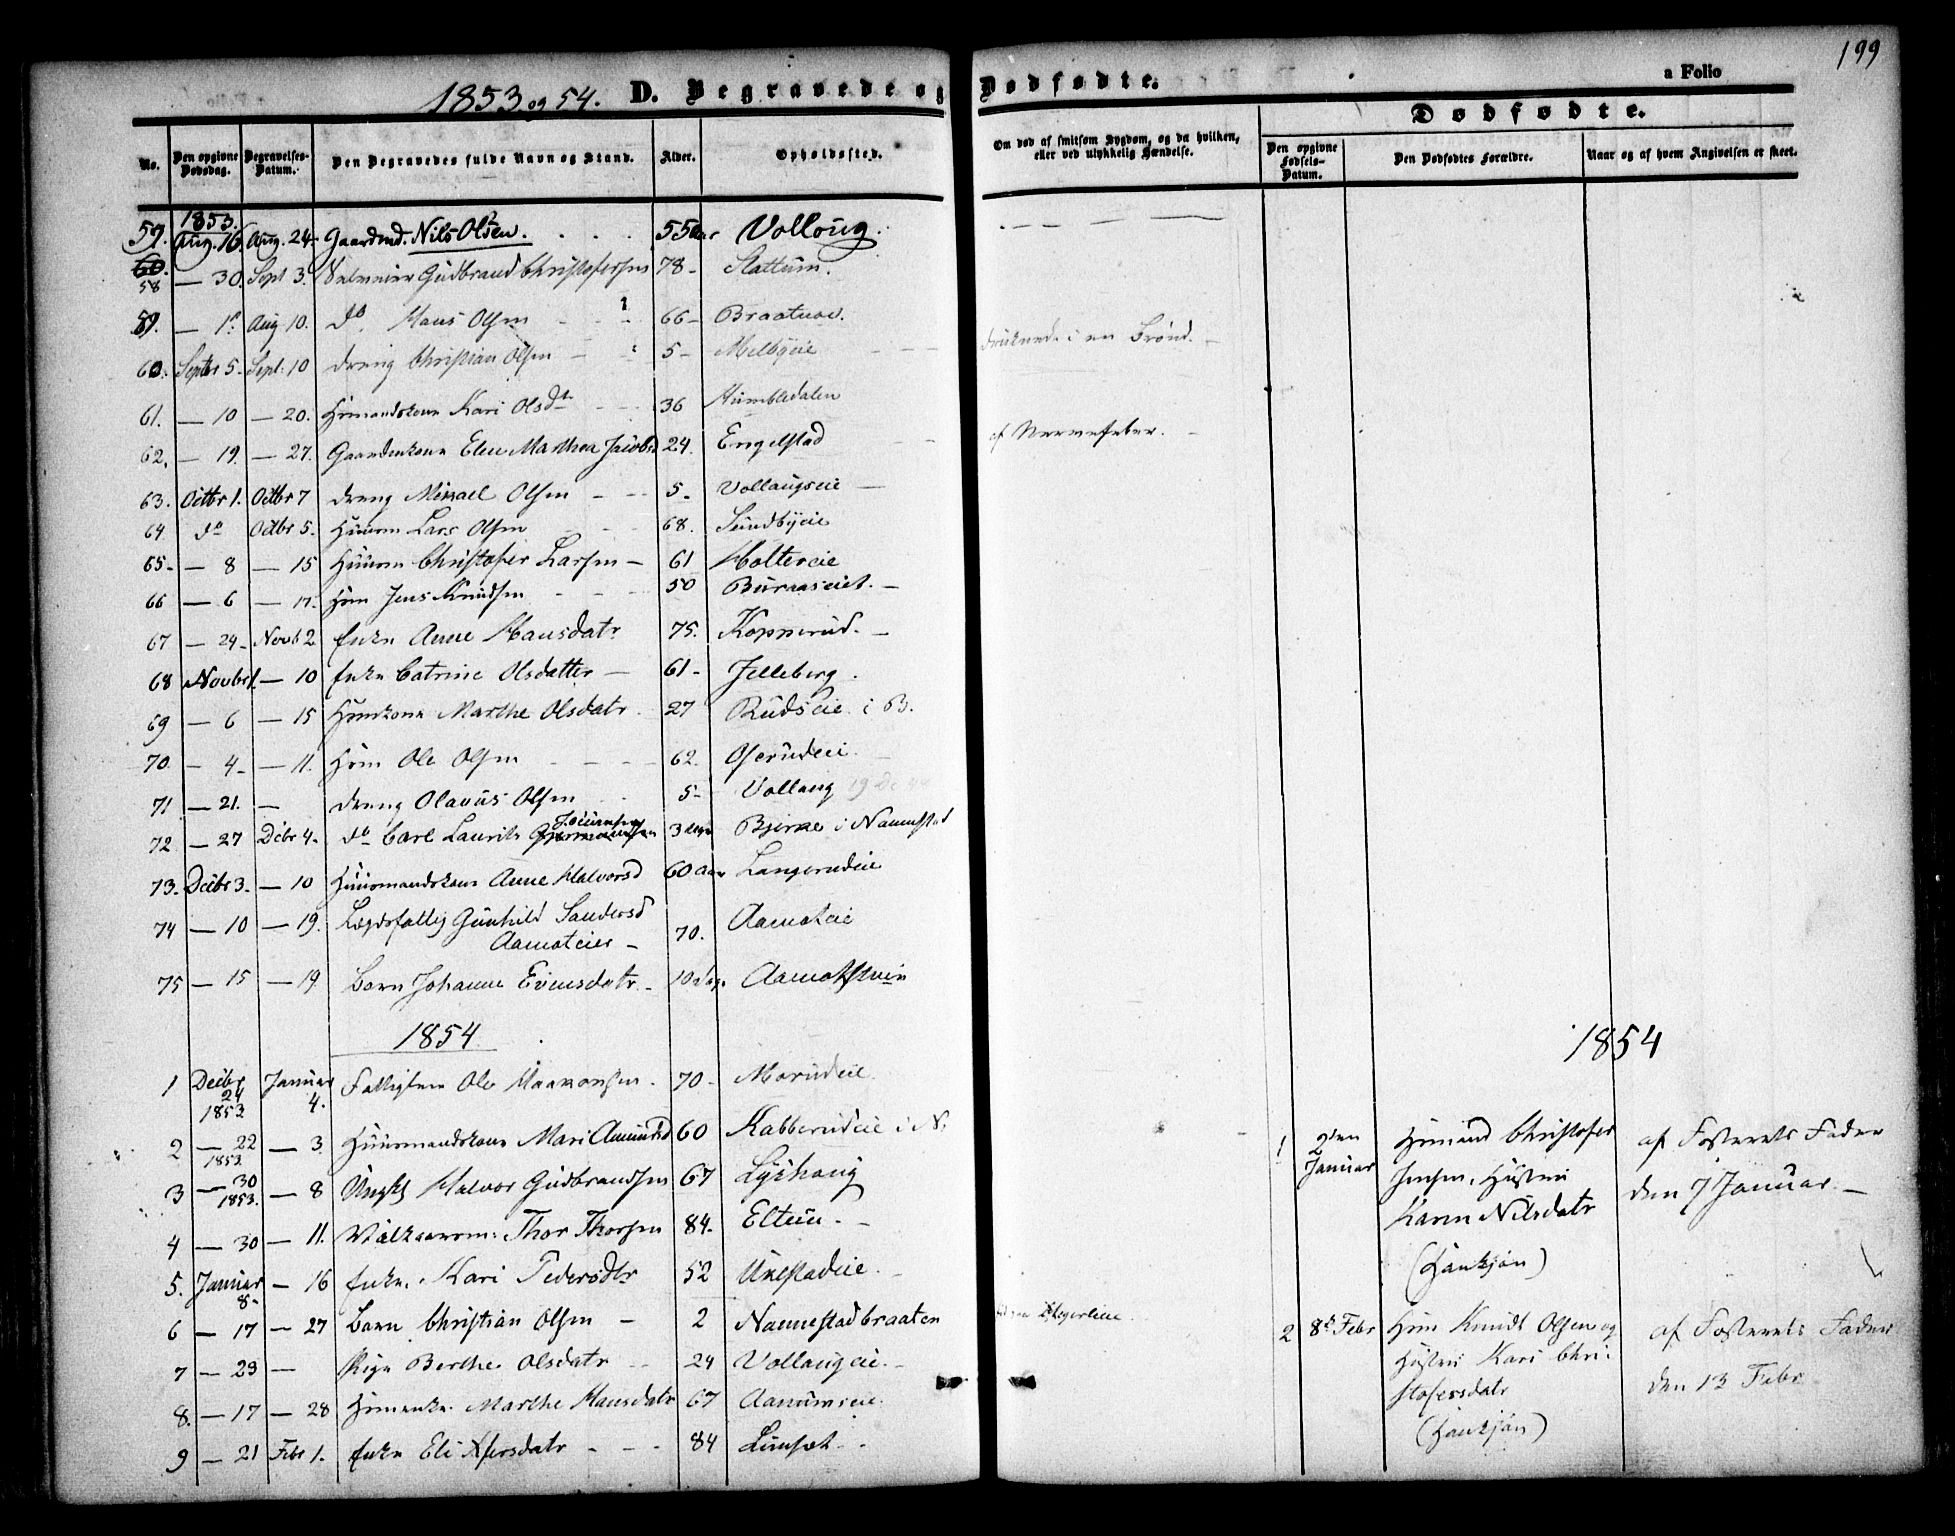 199
1853 og 54. D. Begravede og Dødfødte. a Folio
Dødfødte.
No. Den opgivne Dødsdag. Begravelses-Datum. Den Begravedes fulde Navn og Stand. Alder. Opholdssted. Om død af smitsom Sygdom, og da hvilken, eller ved ulykkelig Hændelse. Den opgivne Fødsels-Datum. Den Dødfødtes Forældre. Naar og af hvem Angivelsen er skeet.
1853.
57. Aug. 16. Aug. 24. Gaardmd. Nils Olsen. 55 Aar Volloug.
58 — 30. Sept 3. Gudbrand Christofersen 78 - Slattum.
59. — 1. Aug 10. Do. Hans Olsen 66 - Braatnae.
60. Septbr 5. Sept. 10 Dreng Christian Olsen 5 - Melbyeie druknede i en Brønd.
61. — 10 — 20. Hmandskone Kari Olsdtr 36 Humbledalen
62. — 19. — 27. Gaardmkone Elen Marthea Jacobsd 24. Engelstad af Nervefeber.
63. Octbr 1. Octbr 7 Dreng Mikael Olsen 5. Vollaugseie
64 do Octbr 5. Huusm Lars Olsen 68. Sundbyeie
65 - — 8 — 15 Huusm Christofer Larsen 61 Holtereie
66 — 6 — 17. Hm Jens Knudsen 50 Buraaseiet.
67 — 24 - Novb 2 Enke Anne Hansdatr 75. Kopperud.
68 Novbr 1. — 10 Enke Catrine Olsdatter 61 - Jelleberg.
69 — 6 — 15 Hmkone Marthe Olsdatr 27 Rudseie i B.
70. — 4 - — 11. Hm Ole Olsen 62. Oserudeie.
71 — 21. — Dreng Olavus Olsen 5 - Vollaug
72 — 27 Decbr 4. do Carl Laurits 3 Bjerke i Nannestad
73. Decbr 3. — 10 Huusmandskone Anne Halvorsd 60 Aar Langerudeie
74 — 10 — 19. Lægdsfattig Gunhild Sandersd
Aamoteier 70. Aamoteie
75 — 15 — 19 Barn Johanne Evensdatr 10 dage
1854.
1854
1 Decbr 24 1853 Januar 4. Ole Haakonsen. 70 - Morudeie
2 — 22 1853 — 3 Huusmandskone Mari Amundsd 60 Kabberudeie i N.
3 — 30 1853. — 8 Ungkl Halvor Gudbrandsen 67 Lyshoug
4 — 30 — 11. Thor Thorsen 84. Eltun.
5. Januar 8 - — 16 Enke. Kari Pedersdtr 52 Ukestadeie.
6 — 17 — 27 Barn Christian Olsen 2 Nannestadbraaten
7 — 23 — Pige Berthe Olsdatr 24 Vollaugeie.
8. — 17 — 28 Hmenke. Marthe Hansdatr 67
9 — 21 Febr 1. Enke Eli 84
1 2den Januar Hmand Christofer
Jensen, Hustru
Karen Nilsdatr
(Hankjøn)
af Fosterets Fader
den 7 Januar.
2 8de Febr Hm Knudt Olsen og
Hustru Kari Chri-
stofersdatr
(Hankjøn)
af Fosterets Fader
den 13 Febr